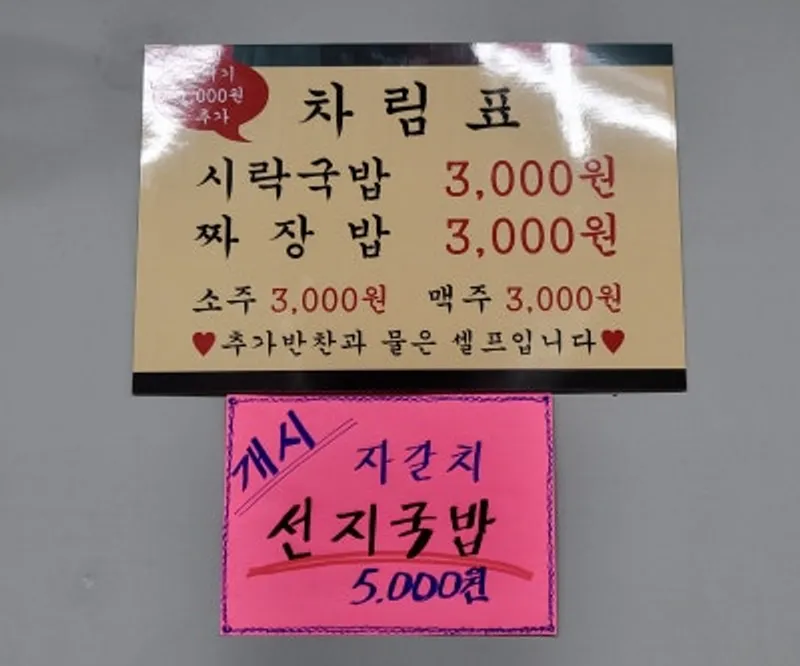 추가
차림표
시락국밥 3,000원
짜장밥 3,000원
소주 3,000원 맥주 3,000원
♥추가반찬과 물은 셀프입니다♥
개시
자갈치
선지국밥
5.000원